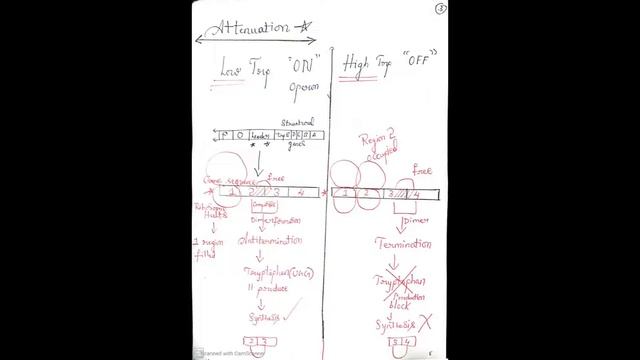 ③
Attenuation
Low Trp "ON"
Operon
High Trp "OFF"
Structural
P O Leader Trp E D C B A
genes
Region 2
occupied
free
free
1 2 3 4
1 2 3 4
Ribosome
Halts
1 region
filled
Complex
Dimer formation
Antitermination
Tryptophan
product
Synthesis
2 3
Dimer
Termination
Tryptophan
Production
block
Synthesis X
3 4
Scanned with CamScanner